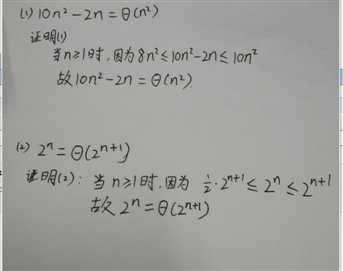 (1) 10n² - 2n = Θ(n²)
证明(1)
当n≥1时,因为8n²≤10n²-2n≤10n²
故10n²-2n=Θ(n²).
(2) 2ⁿ = Θ(2ⁿ⁺¹)
证明(2): 当n≥1时,因为 ½·2ⁿ⁺¹≤2ⁿ≤2ⁿ⁺¹
故 2ⁿ=Θ(2ⁿ⁺¹)